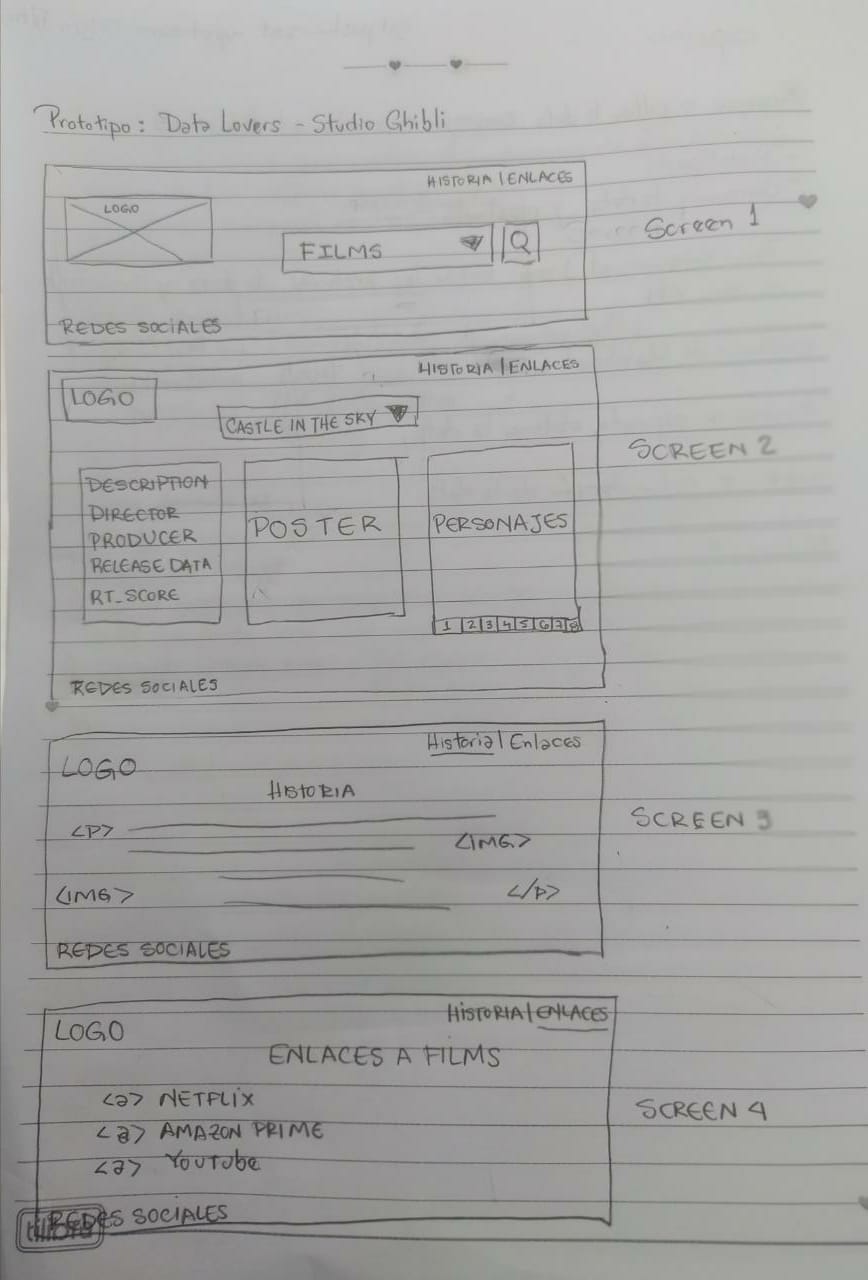 Prototipo: Data Lovers - Studio Ghibli
HISTORIA | ENLACES
LOGO
Screen 1
FILMS
REDES SOCIALES
HISTORIA | ENLACES
LOGO
CASTLE IN THE SKY
SCREEN 2
DESCRIPTION
DIRECTOR
PRODUCER
RELEASE DATA
RT_SCORE
POSTER
PERSONAJES
1 2 3 4 5 6 7 8
REDES SOCIALES
Historia | Enlaces
LOGO
HISTORIA
SCREEN 3
<P>
<IMG>
<IMG>
</P>
REDES SOCIALES
HISTORIA | ENLACES
LOGO
ENLACES A FILMS
<a> NETFLIX
SCREEN 4
<a> AMAZON PRIME
<a> YouTube
REDES SOCIALES